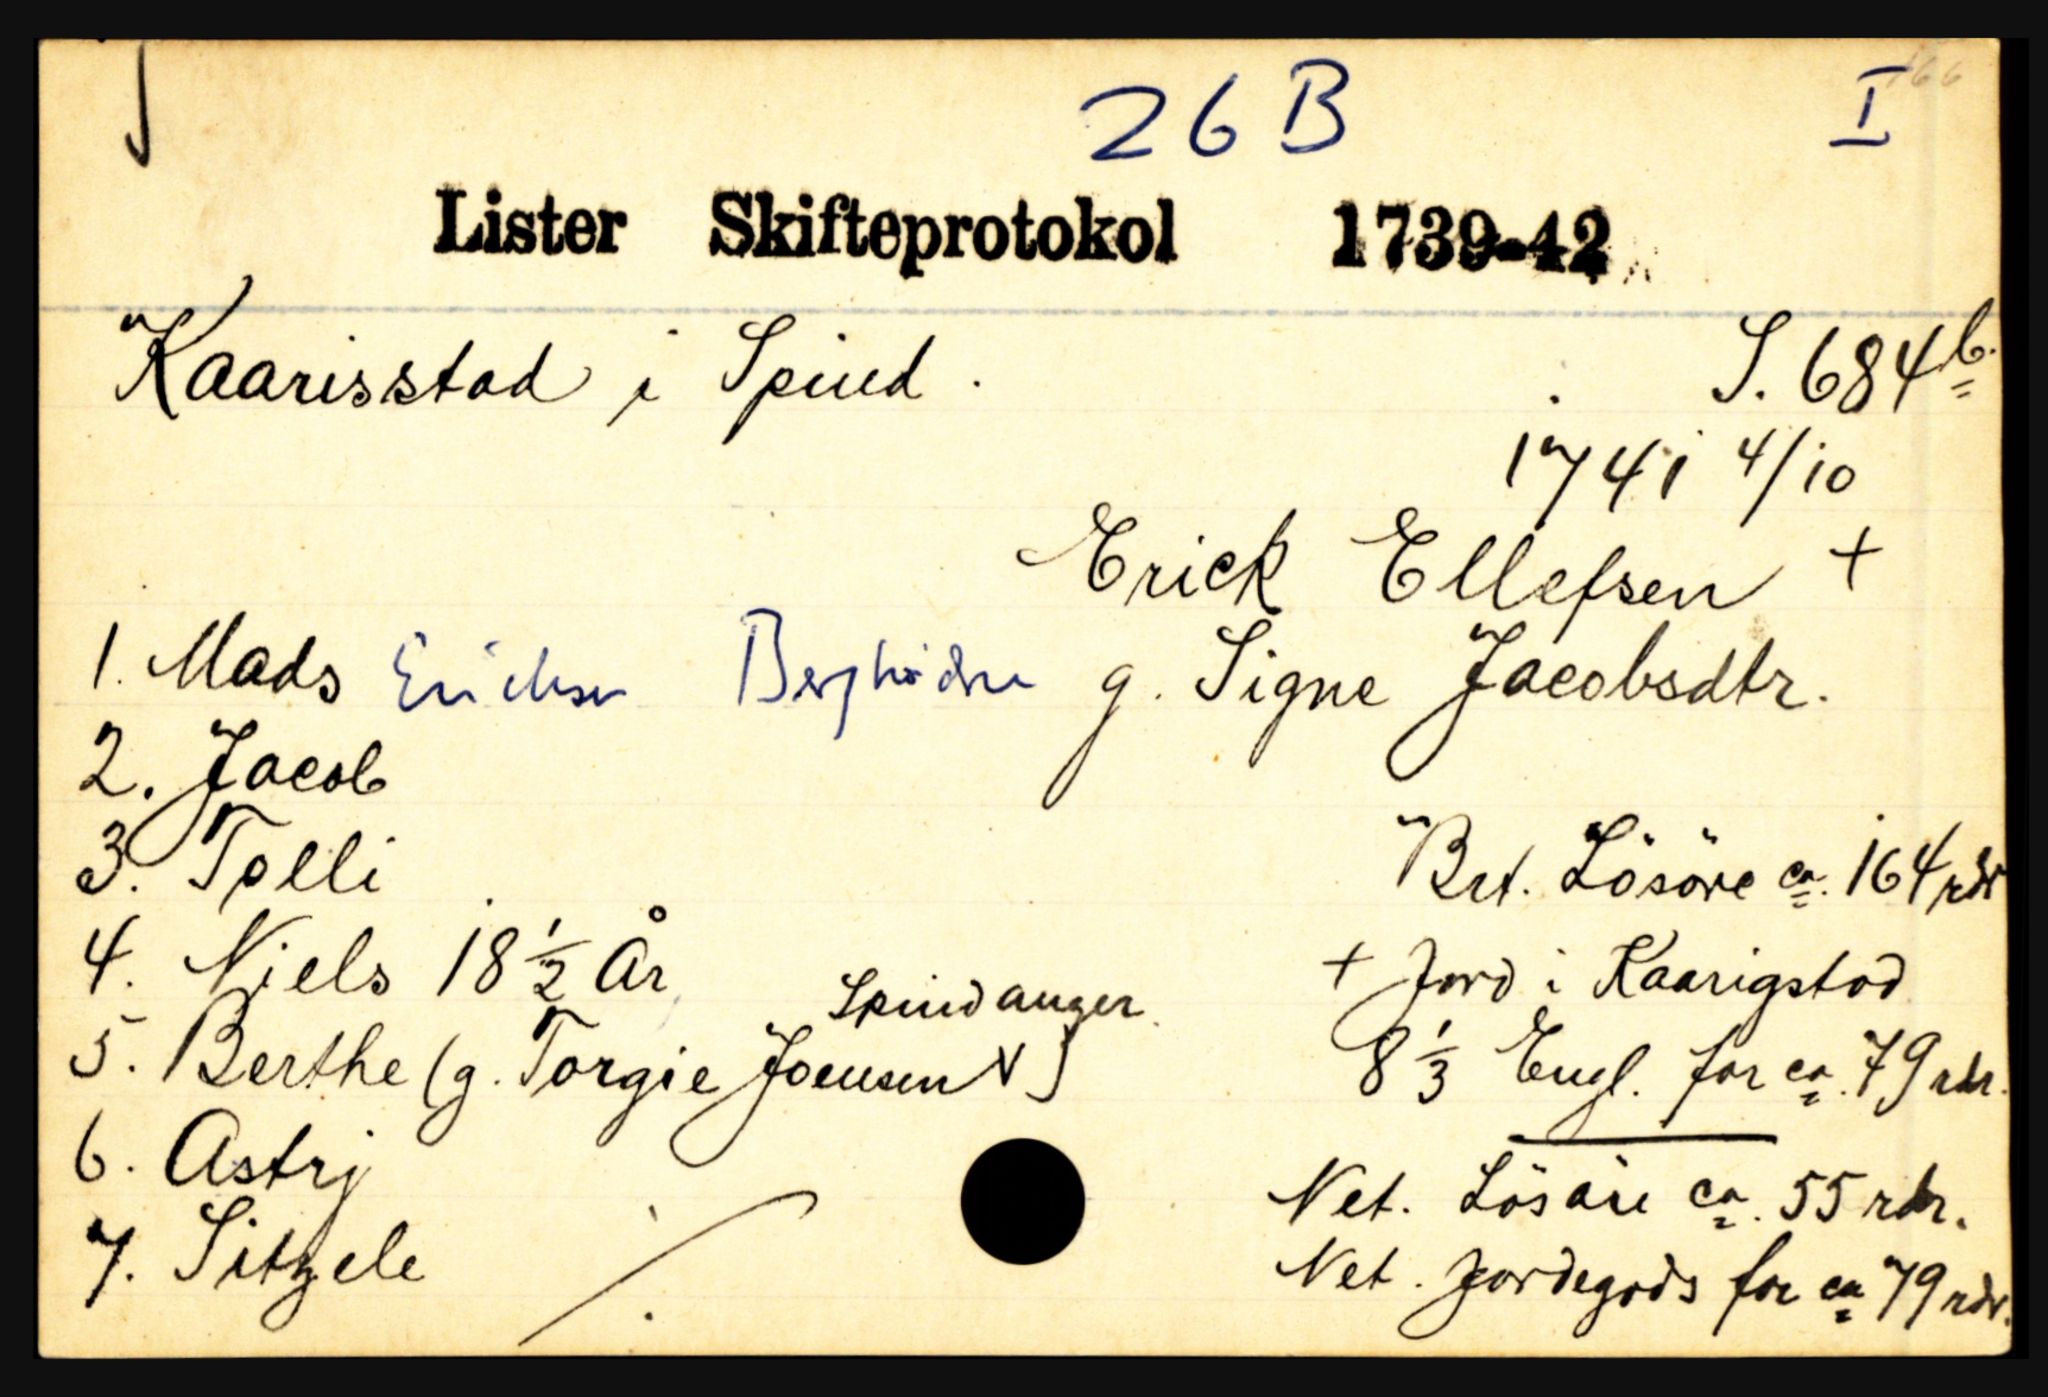 26 B I 166
Lister Skifteprotokol 1739-42
Kaarisstad i Spind. S. 684 b.
1741 4/10
Erick Ellefsen +
1. Mads Erichsen g. Signe Jacobsdtr.
2. Jacob
3. Tolli Brt. Lösöre ca. 164 rdr
4. Niels 18 1/2 År + Jord i Kaarigstad
Spindanger
5. Berthe (g. Torgie Joensen V) 8 1/3 Engl. for ca. 79 rdr.
6. Astrj Net. Lösöre ca. 55 rdr.
7. Sitzele Net. Jordegods for ca 79 rdr.